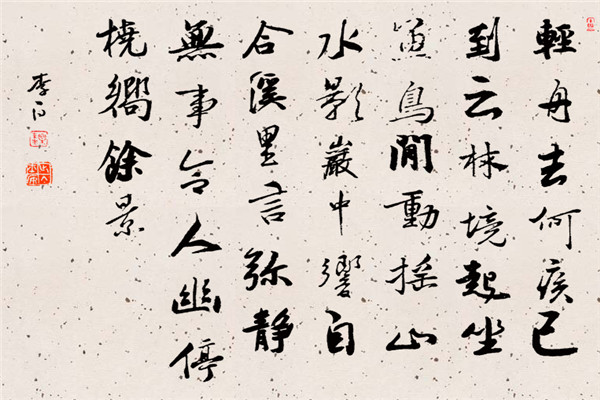 輕舟去何疾已
到云林境起坐
魚鳥間動摇山
水影巖中響自
合溪里言弥静
無事令人幽停
橈嚮餘景
李白